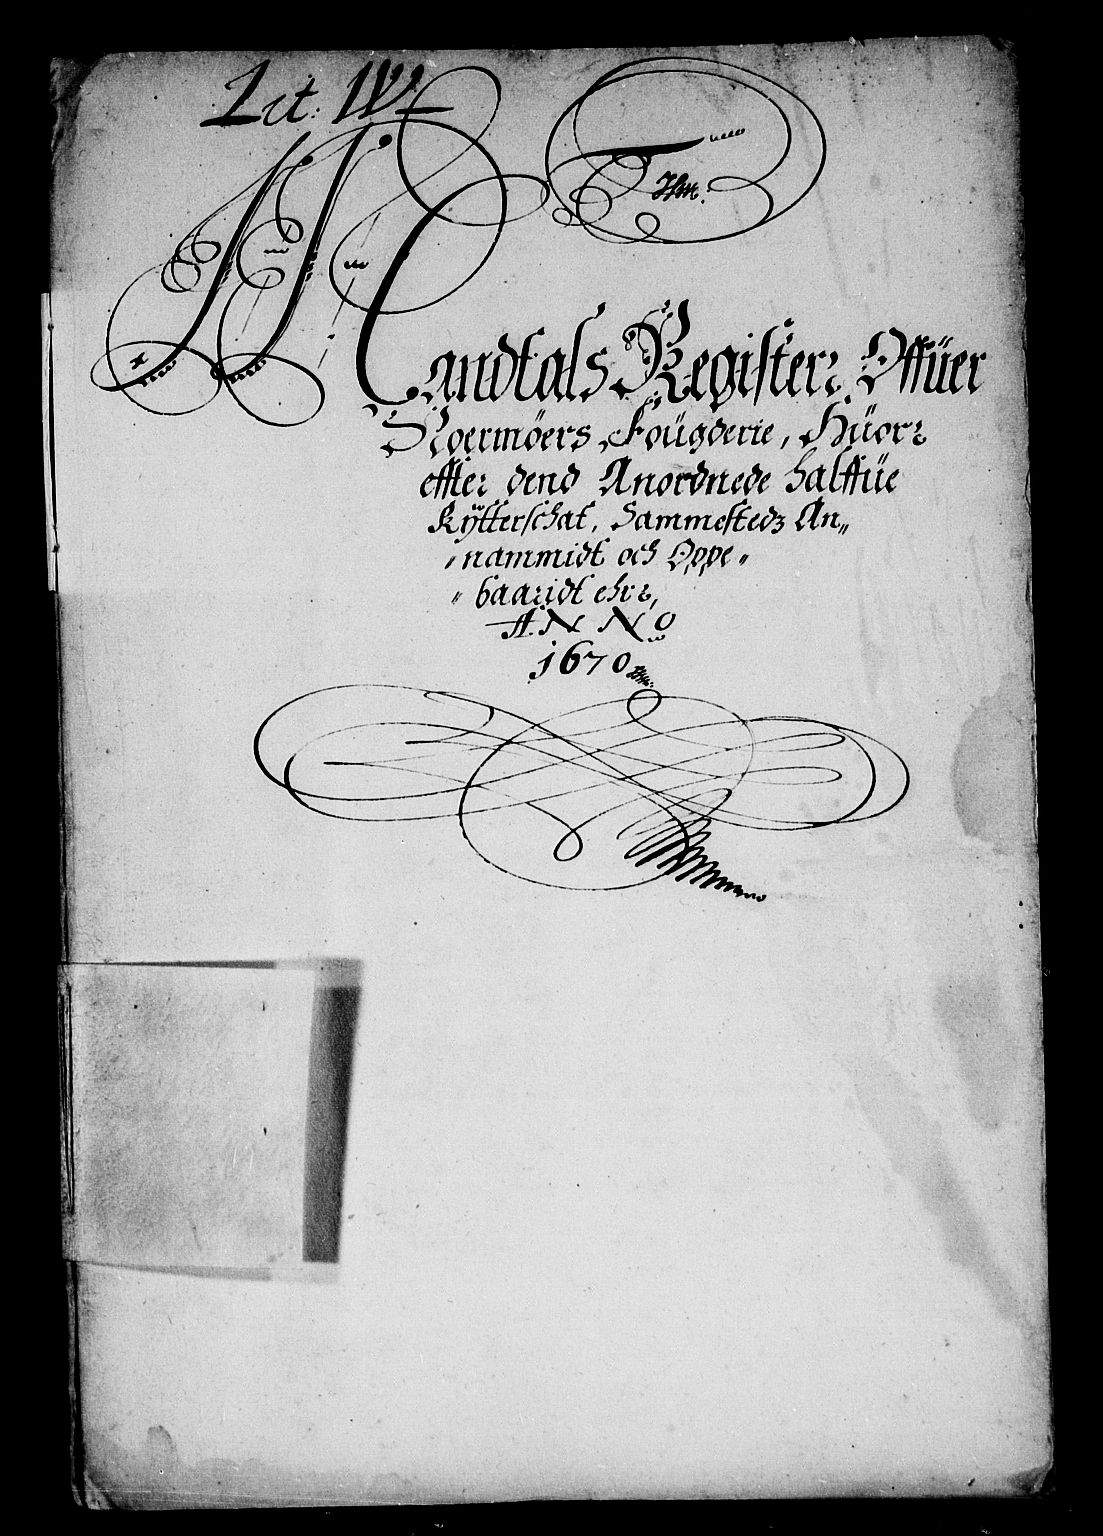 Lit: W
Mandtals Register, Offüer
Noermöers Fougderie, Hüor
effter dend Anordnede halffüe
Rytterschat, Sammestedz An„
„nammidt och Oppe„
„baaridt ehr,
ANNO
1670